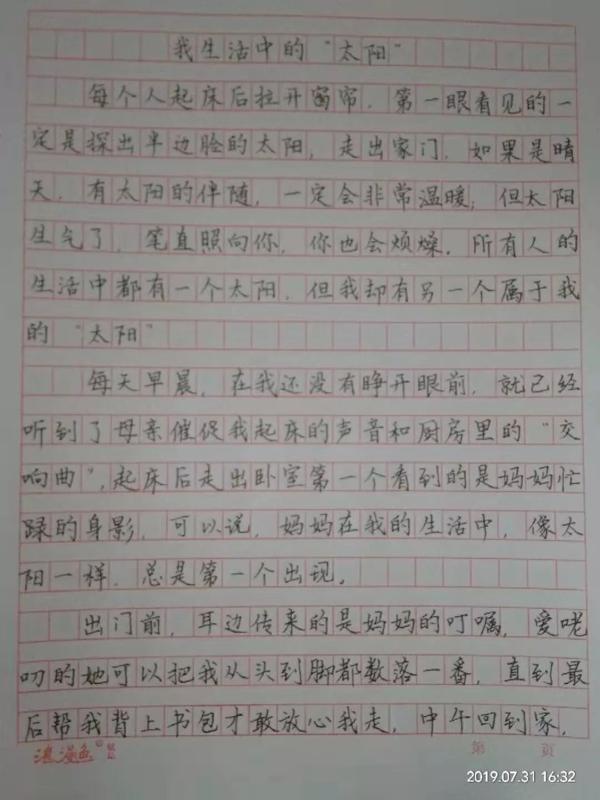 我生活中的“太阳”
每个人起床后拉开窗帘，第一眼看见的一
定是探出半边脸的太阳，走出家门，如果是晴
天，有太阳的伴随，一定会非常温暖，但太阳
生气了，笔直照向你，你也会烦燥。所有人的
生活中都有一个太阳，但我却有另一个属于我
的“太阳”
每天早晨，在我还没有睁开眼前，就已经
听到了母亲催促我起床的声音和厨房里的“交
响曲”，起床后走出卧室第一个看到的是妈妈忙
碌的身影，可以说，妈妈在我的生活中，像太
阳一样，总是第一个出现。
出门前，耳边传来的是妈妈的叮嘱，爱唠
叨的她可以把我从头到脚都数落一番，直到最
后帮我背上书包才敢放心我走，中午回到家，
浪漫鱼
第 页
2019.07.31 16:32